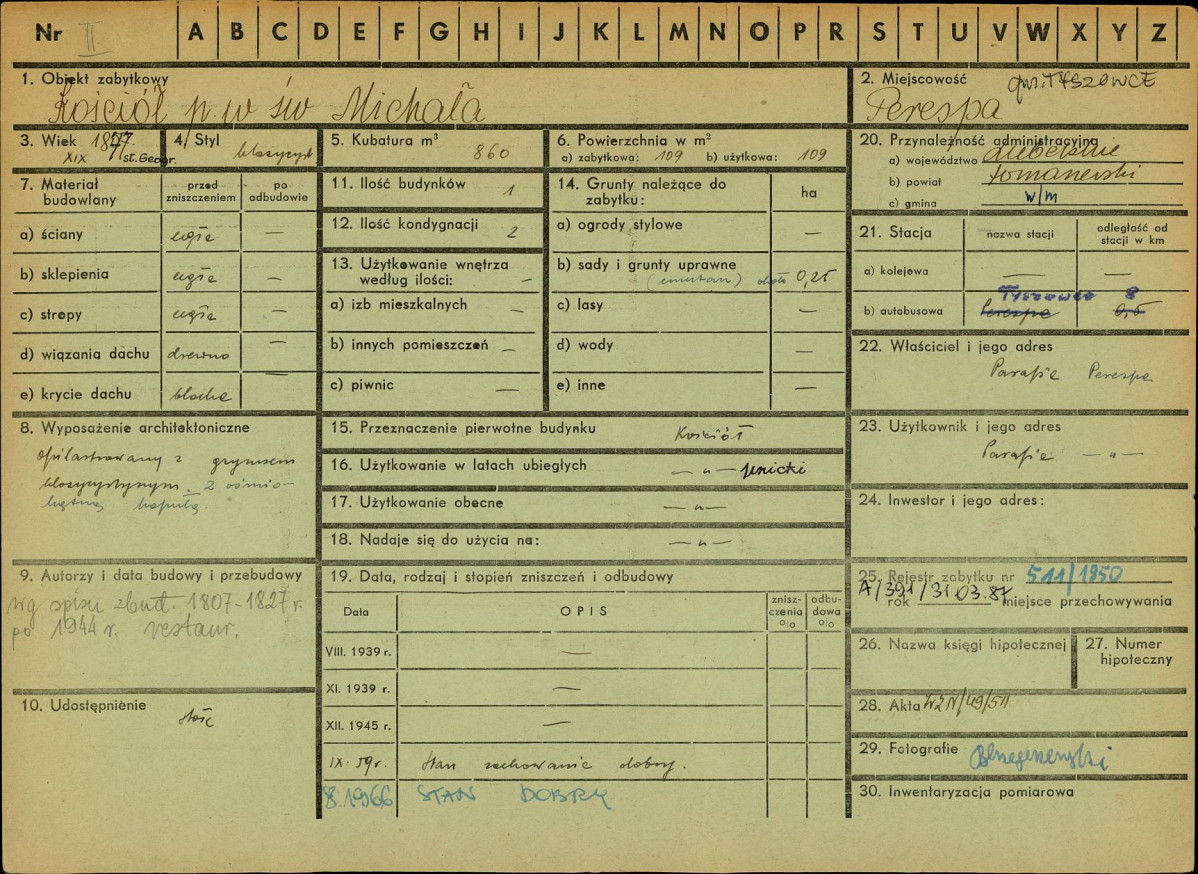 Nr II A B C D E F G H I J K L M N O P R S T U V W X Y Z
1. Obiekt zabytkowy
Kościół p.w św Michała
2. Miejscowość gm. TYSZOWCE
Perespa
3. Wiek
XIX st. Geogr.
4. Styl klasycyst
5. Kubatura m³ 860
6. Powierzchnia w m²
a) zabytkowa: 109 b) użytkowa: 109
20. Przynależność administracyjna
a) województwo Lubelskie
b) powiat tomaszewski
c) gmina w/m
7. Materiał budowlany
przed zniszczeniem
po odbudowie
a) ściany cegła —
b) sklepienia cegła —
c) stropy cegła —
d) wiązania dachu drewno —
e) krycie dachu blacha —
11. Ilość budynków 1
12. Ilość kondygnacji 2
13. Użytkowanie wnętrza według ilości: —
a) izb mieszkalnych —
b) innych pomieszczeń —
c) piwnic —
14. Grunty należące do zabytku:
ha
a) ogrody stylowe —
b) sady i grunty uprawne
(cmentarz) około 0,25
c) lasy —
d) wody —
e) inne —
21. Stacja
nazwa stacji
odległość od stacji w km
a) kolejowa — —
Tyszowce 8
b) autobusowa Perespa 0,5
22. Właściciel i jego adres
Parafia Perespa
8. Wyposażenie architektoniczne
opilastrowany z gzymsem
klasycystycznym. Z ośmio-
kątną kopułą.
15. Przeznaczenie pierwotne budynku Kościół
16. Użytkowanie w latach ubiegłych — „ —
17. Użytkowanie obecne — „ —
18. Nadaje się do użycia na: — „ —
23. Użytkownik i jego adres
Parafia — „ —
24. Inwestor i jego adres:
9. Autorzy i data budowy i przebudowy
wg spisu zbud. 1807-1827 r.
po 1944 r. restaur.
10. Udostępnienie
dość
19. Data, rodzaj i stopień zniszczeń i odbudowy
Data OPIS zniszczenia % odbudowa %
VIII. 1939 r. —
XI. 1939 r. —
XII. 1945 r. —
IX. 59r. Stan zachowania dobry.
8.1966 STAN DOBRY
25. Rejestr zabytku nr 511/1950
A/391/31.03.87
rok miejsce przechowywania
26. Nazwa księgi hipotecznej
27. Numer hipoteczny
28. Akta
29. Fotografie
30. Inwentaryzacja pomiarowa